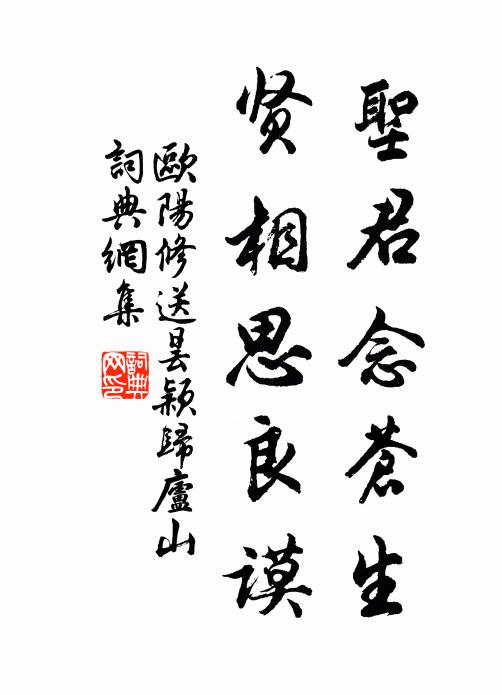 聖君念蒼生
贤相思良謨
歐陽修送昙颖歸廬山
詞典網集
詞典网印